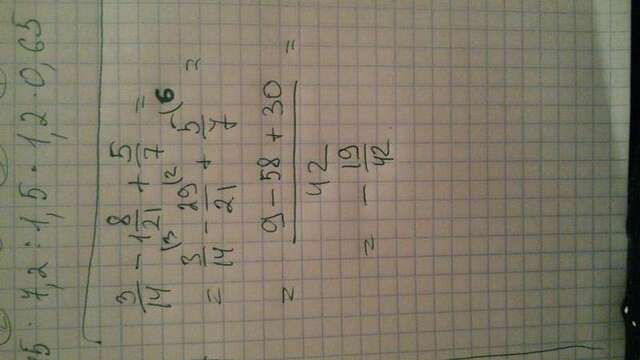 5 · 7,2 : 1,5 · 1,2 · 0,65
3/14 - 1 8/21 + 5/7 =
= 3/14 (3 - 29/21 (2 + 5/7 (6 =
= (9 - 58 + 30)/42 =
= - 19/42